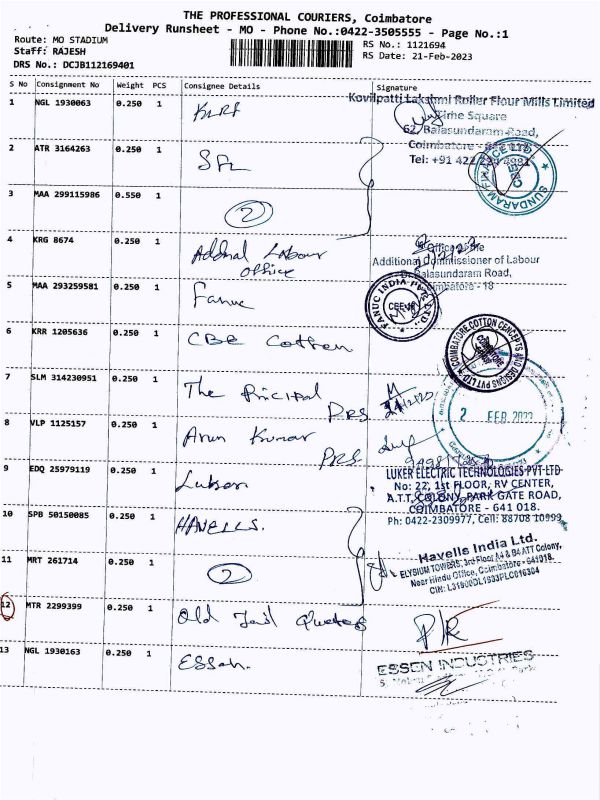 THE PROFESSIONAL COURIERS, Coimbatore
Delivery Runsheet - MO - Phone No.:0422-3505555 - Page No.:1
Route: MO STADIUM
Staff: RAJESH
DRS No.: DCJB112169401
RS No.: 1121694
RS Date: 21-Feb-2023
S No Consignment No Weight PCS Consignee Details Signature
1 NGL 1930063 0.250 1
Kovilpatti Lakshmi Roller Flour Mills Limited
Square
62, Balasundaram Road,
Coimbatore
Tel: +91 422
2 ATR 3164263 0.250 1 SFL
SUNDARAM FINANCE LTD
3 MAA 299115986 0.550 1 2
4 KRG 8674 0.250 1 Addnal Labour office
Office of the
Additional Commissioner of Labour
Balasundaram Road,
Coimbatore - 18
5 MAA 293259581 0.250 1 Fanuc
FANUC INDIA PVT LTD.
6 KRR 1205636 0.250 1 CBE Cotton
COIMBATORE COTTON CONCEPTS AND DESIGNS PVT LTD
7 SLM 314230951 0.250 1 The Pricipal DRS
2 FEB 2023
8 VLP 1125157 0.250 1 Arun Kumar DRS
9 EDQ 25979119 0.250 1 Luker
LUKER ELECTRIC TECHNOLOGIES PVT LTD
No: 22, 1st FLOOR, RV CENTER,
A.T.T. COLONY, PARK GATE ROAD,
COIMBATORE - 641 018.
Ph: 0422-2309977, Cell: 88708 10999
10 SPB 50150085 0.250 1 HAVELLS.
Havells India Ltd.
ELYSIUM TOWERS, 3rd Floor A4 & B4 ATT Colony,
Near Hindu Office, Coimbatore - 641018.
CIN: L31900DL1983PLC016304
11 MRT 261714 0.250 1 2
12 MTR 2299399 0.250 1 Old Jail Quaters
13 NGL 1930163 0.250 1 Essen.
ESSEN INDUSTRIES